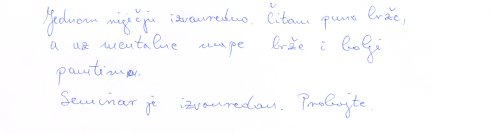 Jednom riječju izvanredno. Čitam puno brže,
a uz mentalne mape brže i bolje
pamtim.
Seminar je izvanredan. Probajte.